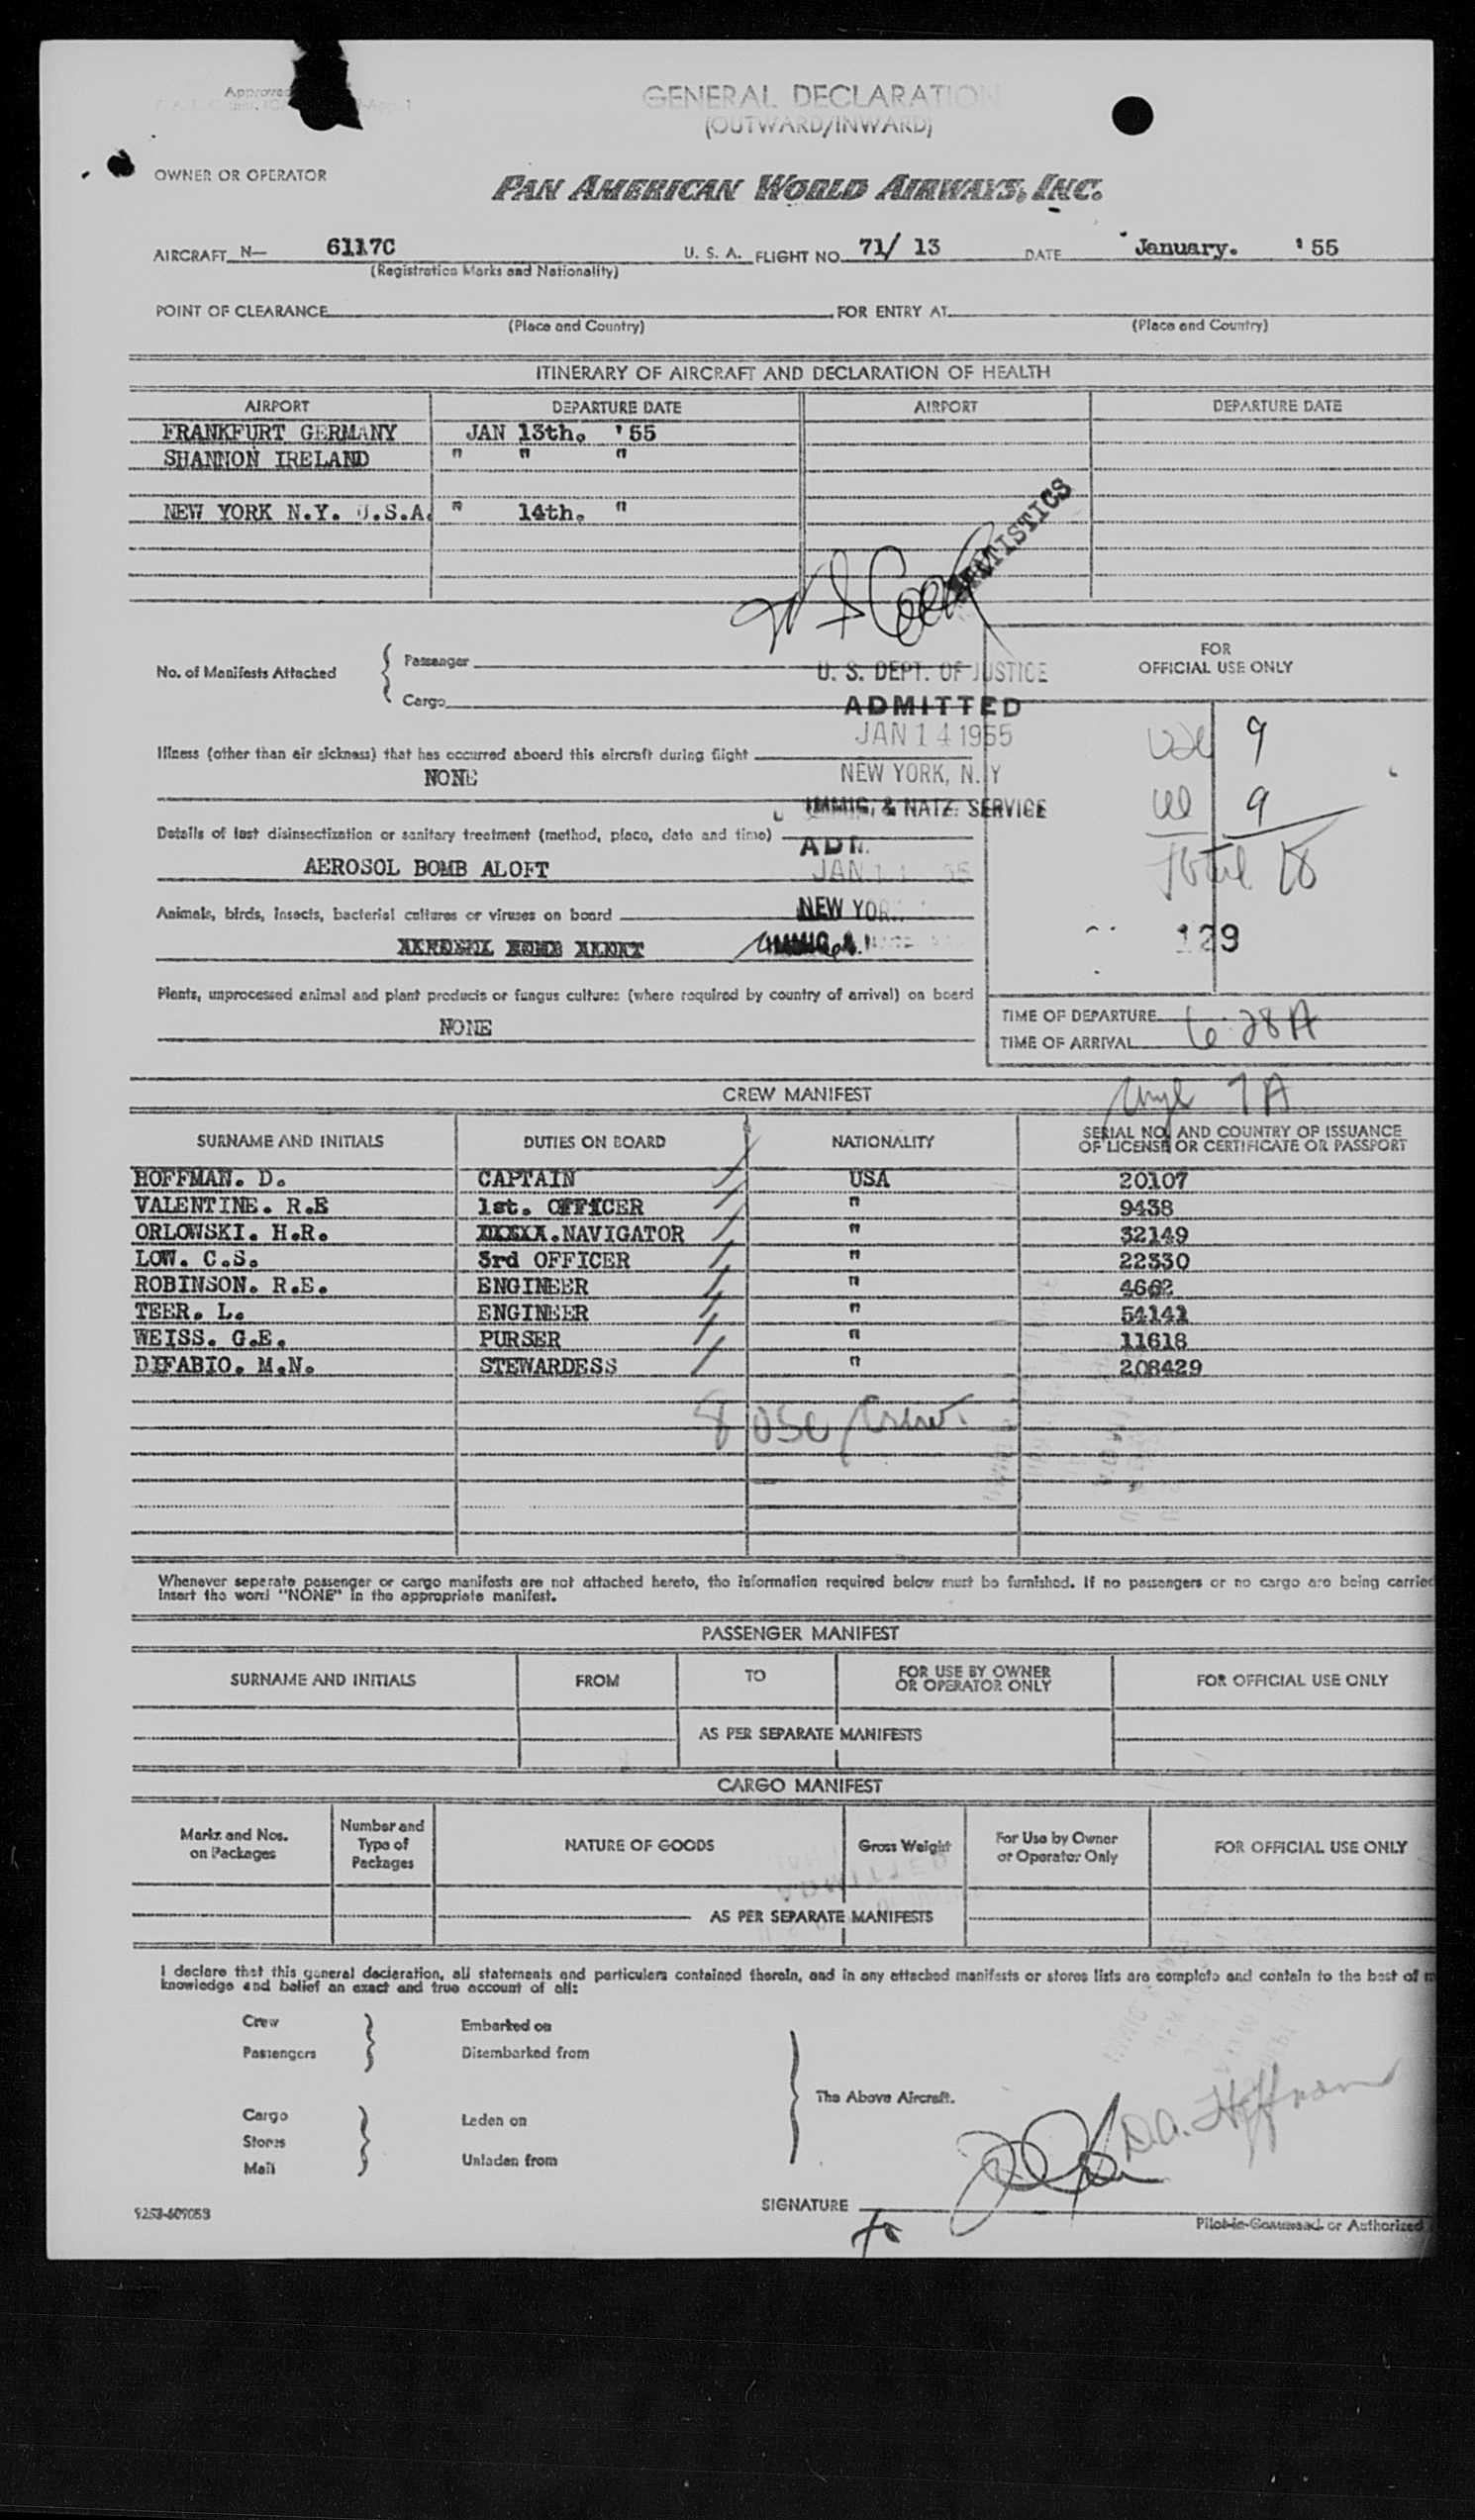 Approved
GENERAL DECLARATION
(OUTWARD/INWARD)
OWNER OR OPERATOR
PAN AMERICAN WORLD AIRWAYS, INC.
AIRCRAFT N— 6117C U. S. A. FLIGHT NO. 71/ 13 DATE January. '55
(Registration Marks and Nationality)
POINT OF CLEARANCE FOR ENTRY AT
(Place and Country) (Place and Country)
ITINERARY OF AIRCRAFT AND DECLARATION OF HEALTH
AIRPORT DEPARTURE DATE AIRPORT DEPARTURE DATE
FRANKFURT GERMANY JAN 13th. '55
SHANNON IRELAND " " "
NEW YORK N.Y. U.S.A. " 14th. "
STATISTICS
FOR
OFFICIAL USE ONLY
No. of Manifests Attached { Passenger
Cargo
U. S. DEPT. OF JUSTICE
ADMITTED
JAN 14 1955
NEW YORK, N.Y
IMMIG. & NATZ. SERVICE
Illness (other than air sickness) that has occurred aboard this aircraft during flight
NONE
Details of last disinsectization or sanitary treatment (method, place, date and time)
AEROSOL BOMB ALOFT
ADM
JAN
NEW YOR
IMMIG &
Animals, birds, insects, bacterial cultures or viruses on board
9
9
Total 18
129
Plants, unprocessed animal and plant products or fungus cultures (where required by country of arrival) on board
NONE
TIME OF DEPARTURE
TIME OF ARRIVAL 6:28A
7A
CREW MANIFEST
SURNAME AND INITIALS DUTIES ON BOARD NATIONALITY SERIAL NO. AND COUNTRY OF ISSUANCE
OF LICENSE OR CERTIFICATE OR PASSPORT
HOFFMAN. D. CAPTAIN USA 20107
VALENTINE. R.E 1st. OFFICER " 9438
ORLOWSKI. H.R. NAVIGATOR " 32149
LOW. C.S. 3rd OFFICER " 22330
ROBINSON. R.E. ENGINEER " 4662
TEER. L. ENGINEER " 54141
WEISS. G.E. PURSER " 11618
DIFABIO. M.N. STEWARDESS " 208429
8 USC
Whenever separate passenger or cargo manifests are not attached hereto, the information required below must be furnished. If no passengers or no cargo are being carried
insert the word "NONE" in the appropriate manifest.
PASSENGER MANIFEST
SURNAME AND INITIALS FROM TO FOR USE BY OWNER
OR OPERATOR ONLY FOR OFFICIAL USE ONLY
AS PER SEPARATE MANIFESTS
CARGO MANIFEST
Marks and Nos.
on Packages Number and
Type of
Packages NATURE OF GOODS Gross Weight For Use by Owner
or Operator Only FOR OFFICIAL USE ONLY
AS PER SEPARATE MANIFESTS
I declare that this general declaration, all statements and particulars contained therein, and in any attached manifests or stores lists are complete and contain to the best of m
knowledge and belief an exact and true account of all:
Crew Embarked on
Passengers Disembarked from
The Above Aircraft.
Cargo Laden on
Stores
Mail Unladen from
D.A. Hoffman
SIGNATURE
Pilot-in-Command or Authorized
9253-509053